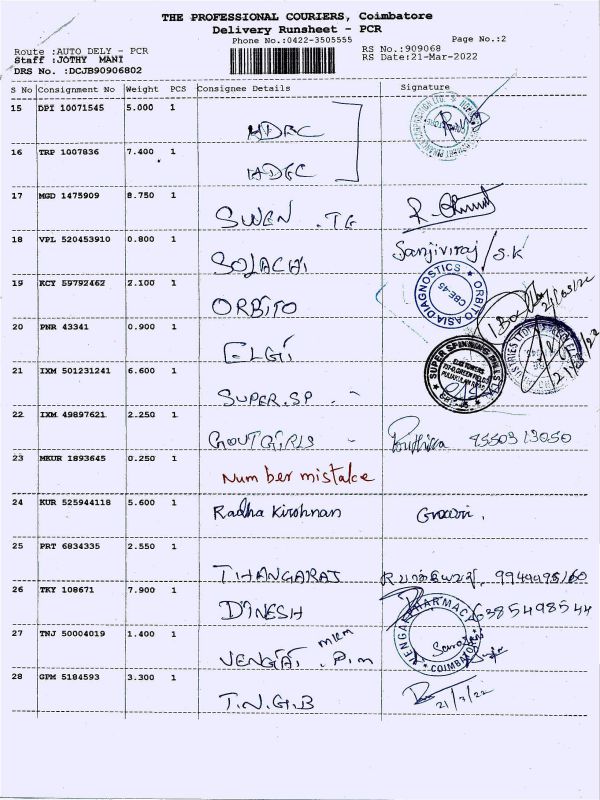 THE PROFESSIONAL COURIERS, Coimbatore
Delivery Runsheet - PCR
Phone No.:0422-3505555
Page No.:2
Route :AUTO DELY - PCR
RS No.:909068
Staff :JOTHY MANI
RS Date:21-Mar-2022
DRS No. :DCJB90906802
S No Consignment No Weight PCS Consignee Details Signature
15 DPI 10071545 5.000 1
HDFC
16 TRP 1007836 7.400 1
HDFC
17 MGD 1475909 8.750 1
SWEN .TE
18 VPL 520453910 0.800 1
SOLACHI Sanjiviraj / S.K
19 KCY 59792462 2.100 1
ORBITO
ORBITO ASIA DIAGNOSTICS
CBE-45
20 PNR 43341 0.900 1
ELGI
21 IXM 501231241 6.600 1
SUPER.SP
SUPER SPINNING MILLS
ELGI TOWERS
22 IXM 49897621 2.250 1
GOVT GIRLS - 9550313050
23 MKUR 1893645 0.250 1
Number mistake
24 KUR 525944118 5.600 1
Radha Kirshnan Gowri.
25 PRT 6834335 2.550 1
THANGARAJ
26 TKY 108671 7.900 1
DINESH 6385498544
27 TNJ 50004019 1.400 1
VENGAI . P.m
PHARMAC
COIMBATORE
28 GPM 5184593 3.300 1
T.N.G.B 21/3/22